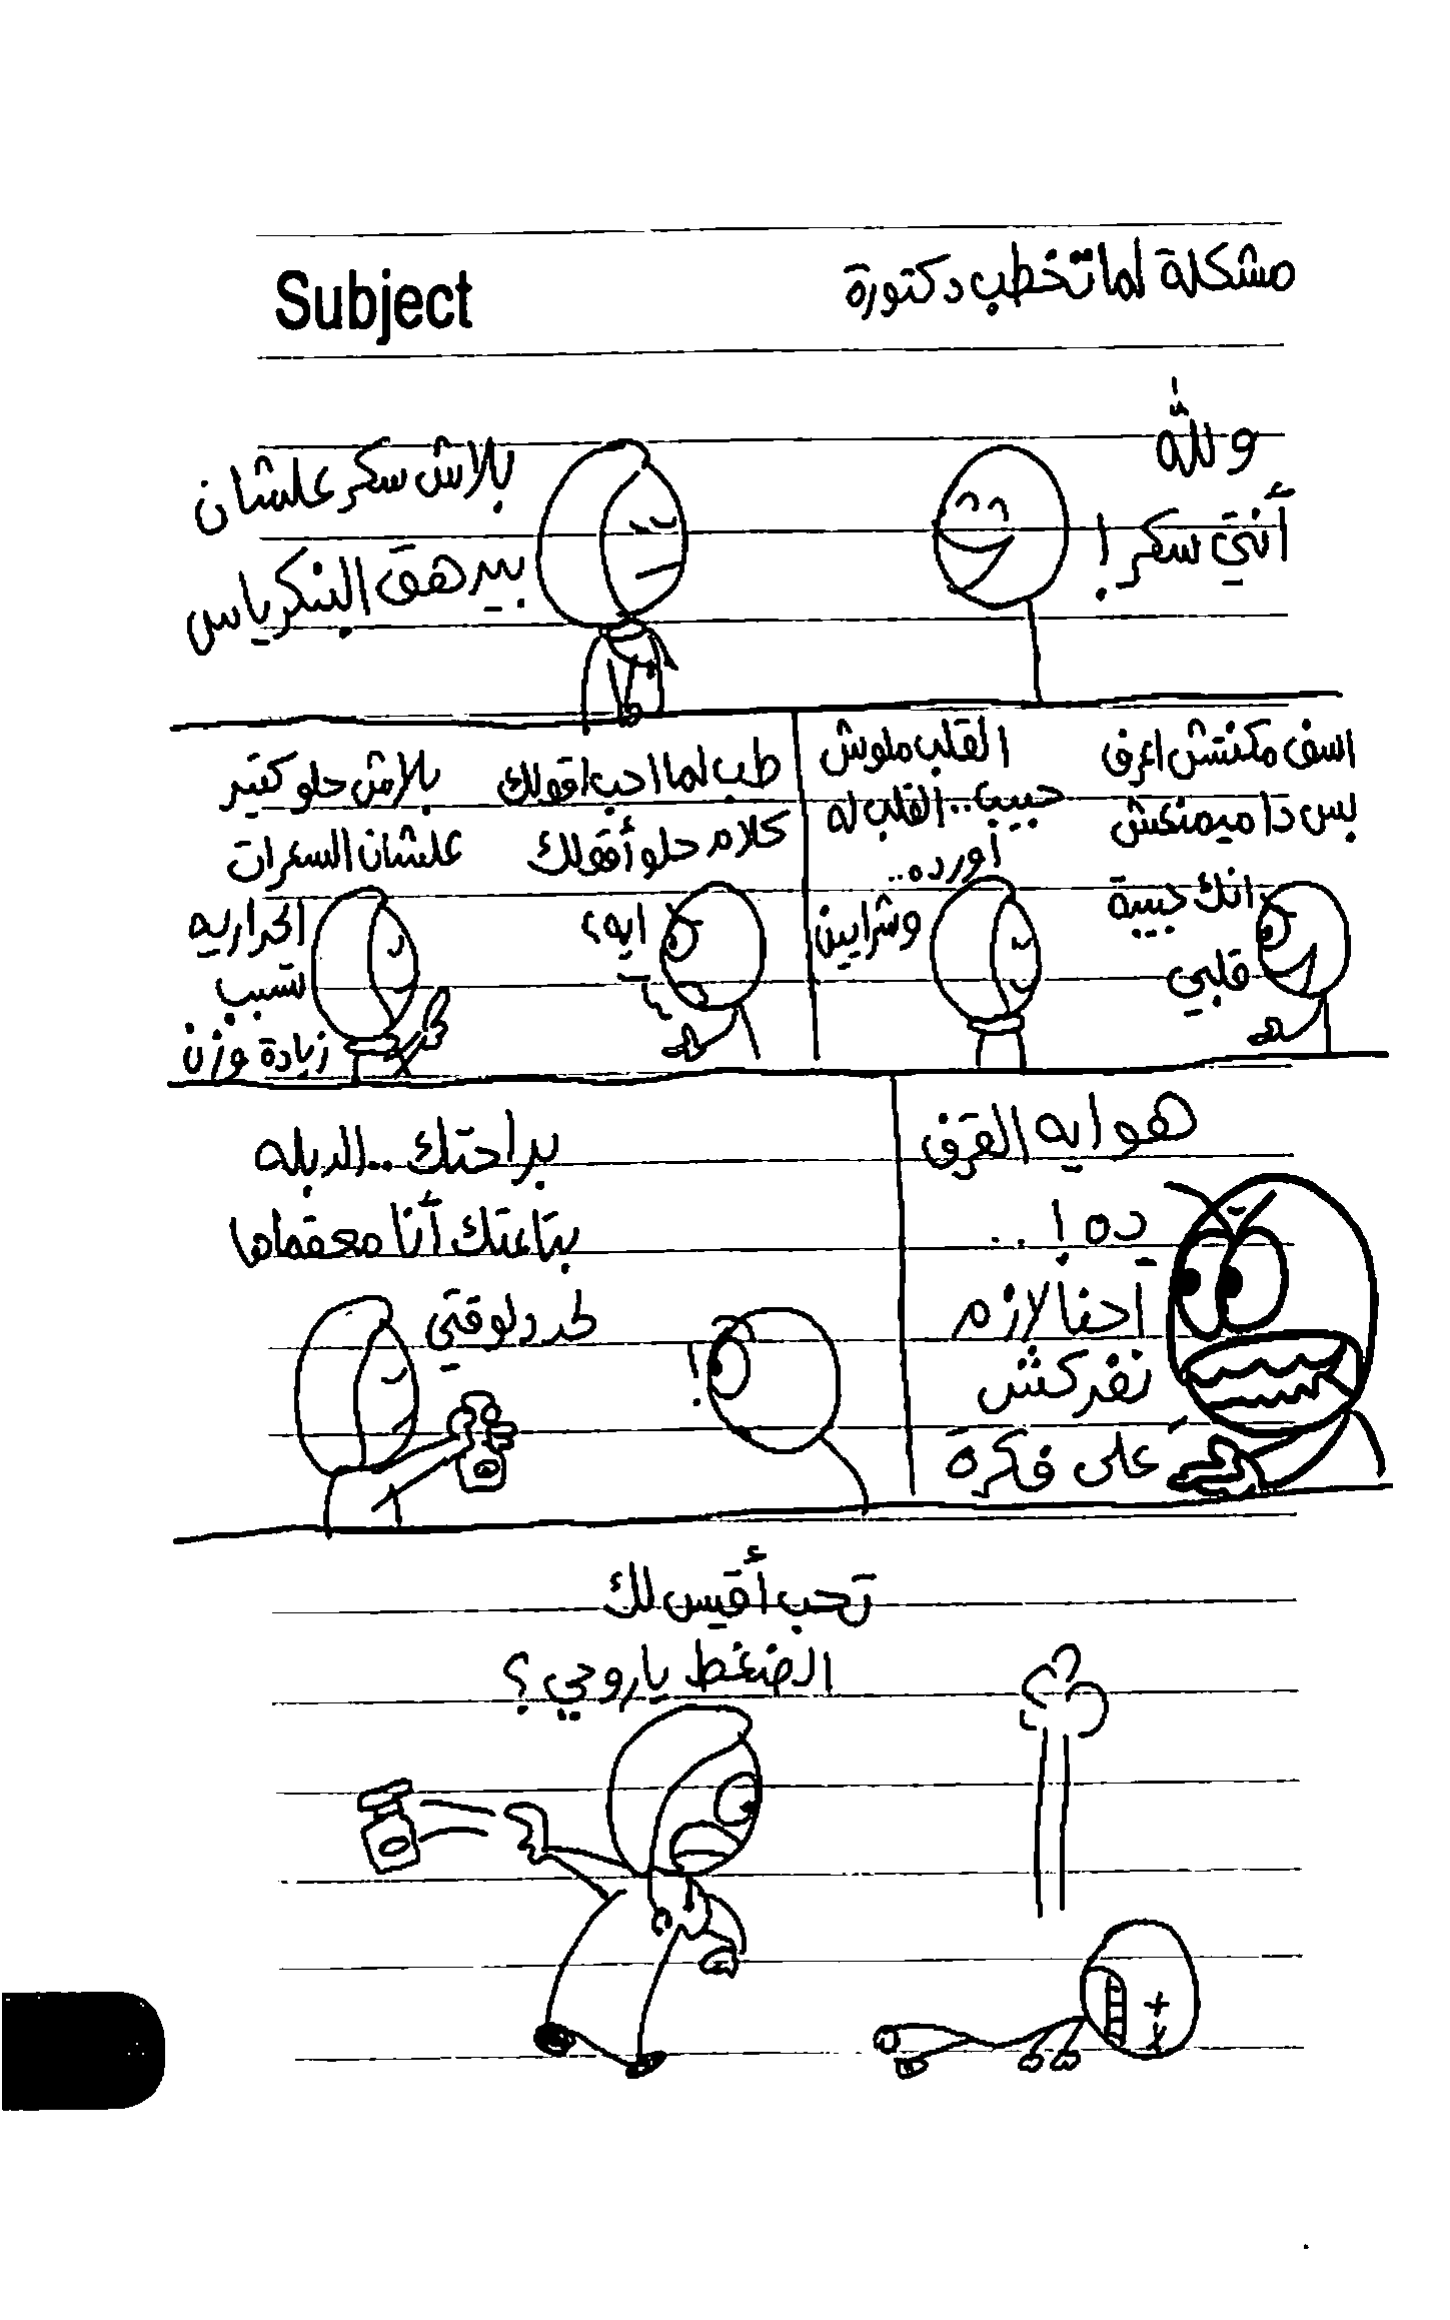 Subject
مشكلة لما تخطب دكتورة
ولله
أنتي سكر!
بلاش سكر علشان
بيرهق البنكرياس
اسف مكنتش اعرف
بس دا ميمنعش
انك حبيبة
قلبي
القلب ملوش
حبيب.. القلب له
أورده..
وشرايين
طب لما احب اقولك
كلام حلو أقولك
ايه؟
بلاش حلو كتير
علشان السعرات
الحراريه
تسبب
زيادة وزن
هو ايه القرف
ده!..
احنا لازم
نفركش
على فكرة
!
براحتك.. الدبله
بتاعتك أنا معقماها
لحد دلوقتي
تحب أقيس لك
الضغط ياروحي؟